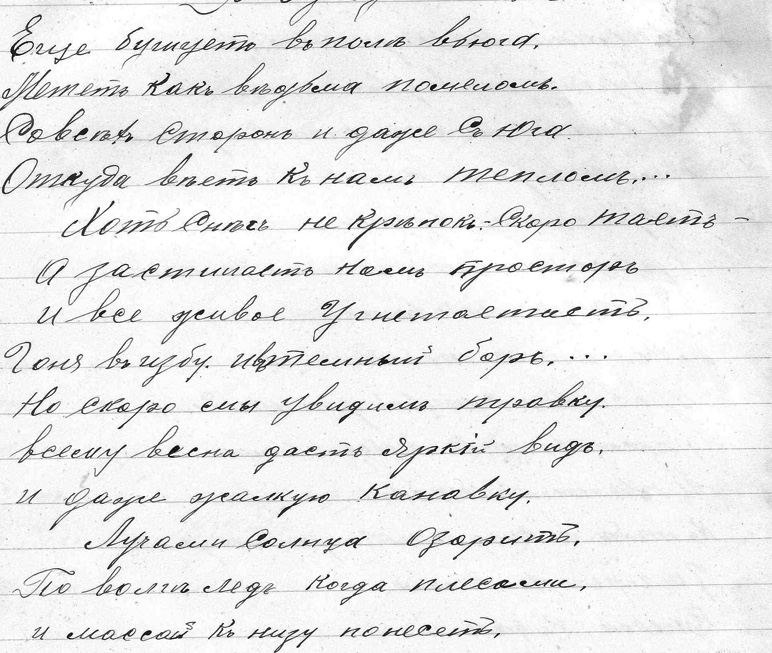 Еще бушуетъ въ полѣ вьюга,
Мететъ какъ вѣдьма помеломъ.
Со всѣхъ сторонъ и даже съ юга.
Откуда вѣетъ къ намъ тепломъ,...
Хоть снѣгъ не крѣпокъ: скоро таетъ –
А застилаетъ намъ просторъ
и все живое угнетаетъ,
Гоня въ избу. и въ темный боръ,...
Но скоро мы увидимъ травку.
всему весна дастъ яркій видъ,
и даже жалкую канавку.
Лучами солнца озоритъ,
По волгѣ ледъ когда плесами,
и массой къ низу понесетъ,